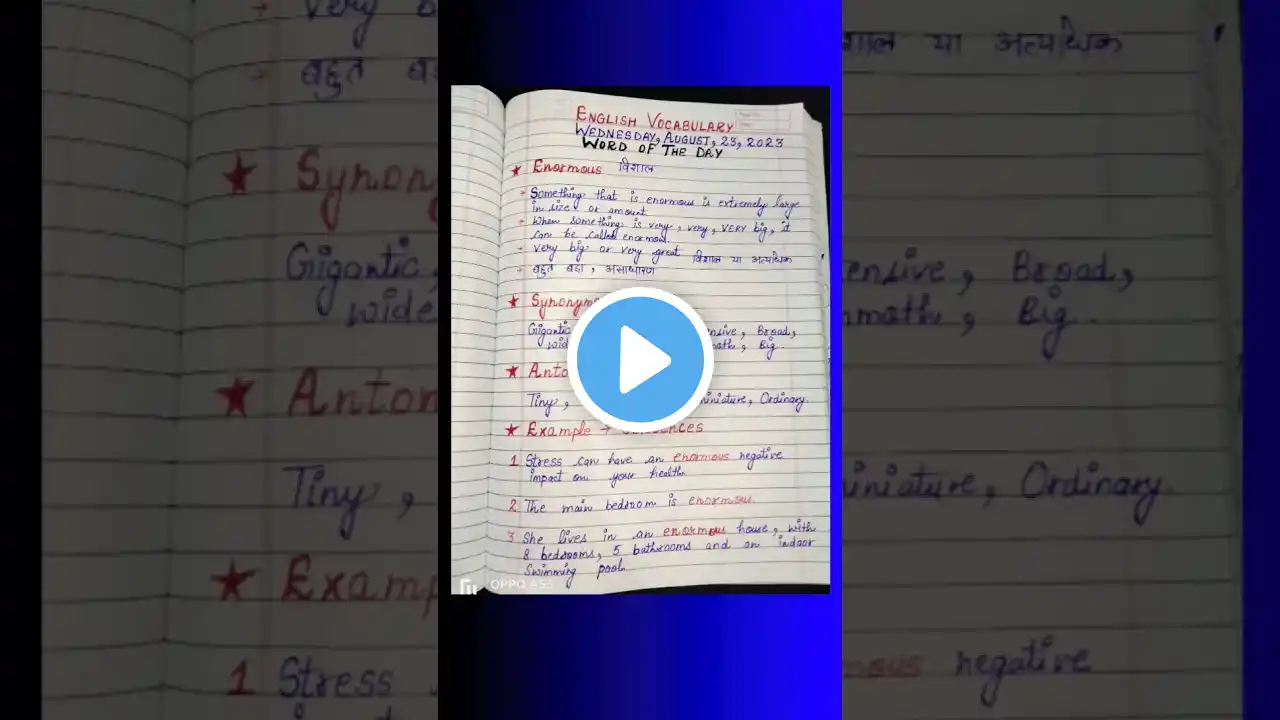 ENGLISH VOCABULARY
WEDNESDAY, AUGUST, 23, 2023
WORD OF THE DAY
★ Enormous विशाल
→ Something that is enormous is extremely large
in size or amount
→ When something is very, very, VERY big, it
can be called enormous.
→ very big or very great विशाल या अत्यधिक
→ बहुत बड़ा, असाधारण
★ Synonyms
Gigantic, Broad,
wide, Big.
★ Anto
Tiny, miniature, Ordinary.
★ Example → Sentences
1 Stress can have an enormous negative
impact on your health.
2 The main bedroom is enormous.
3 She lives in an enormous house, with
8 bedrooms, 5 bathrooms and an indoor
Swimming pool.
OPPO A53